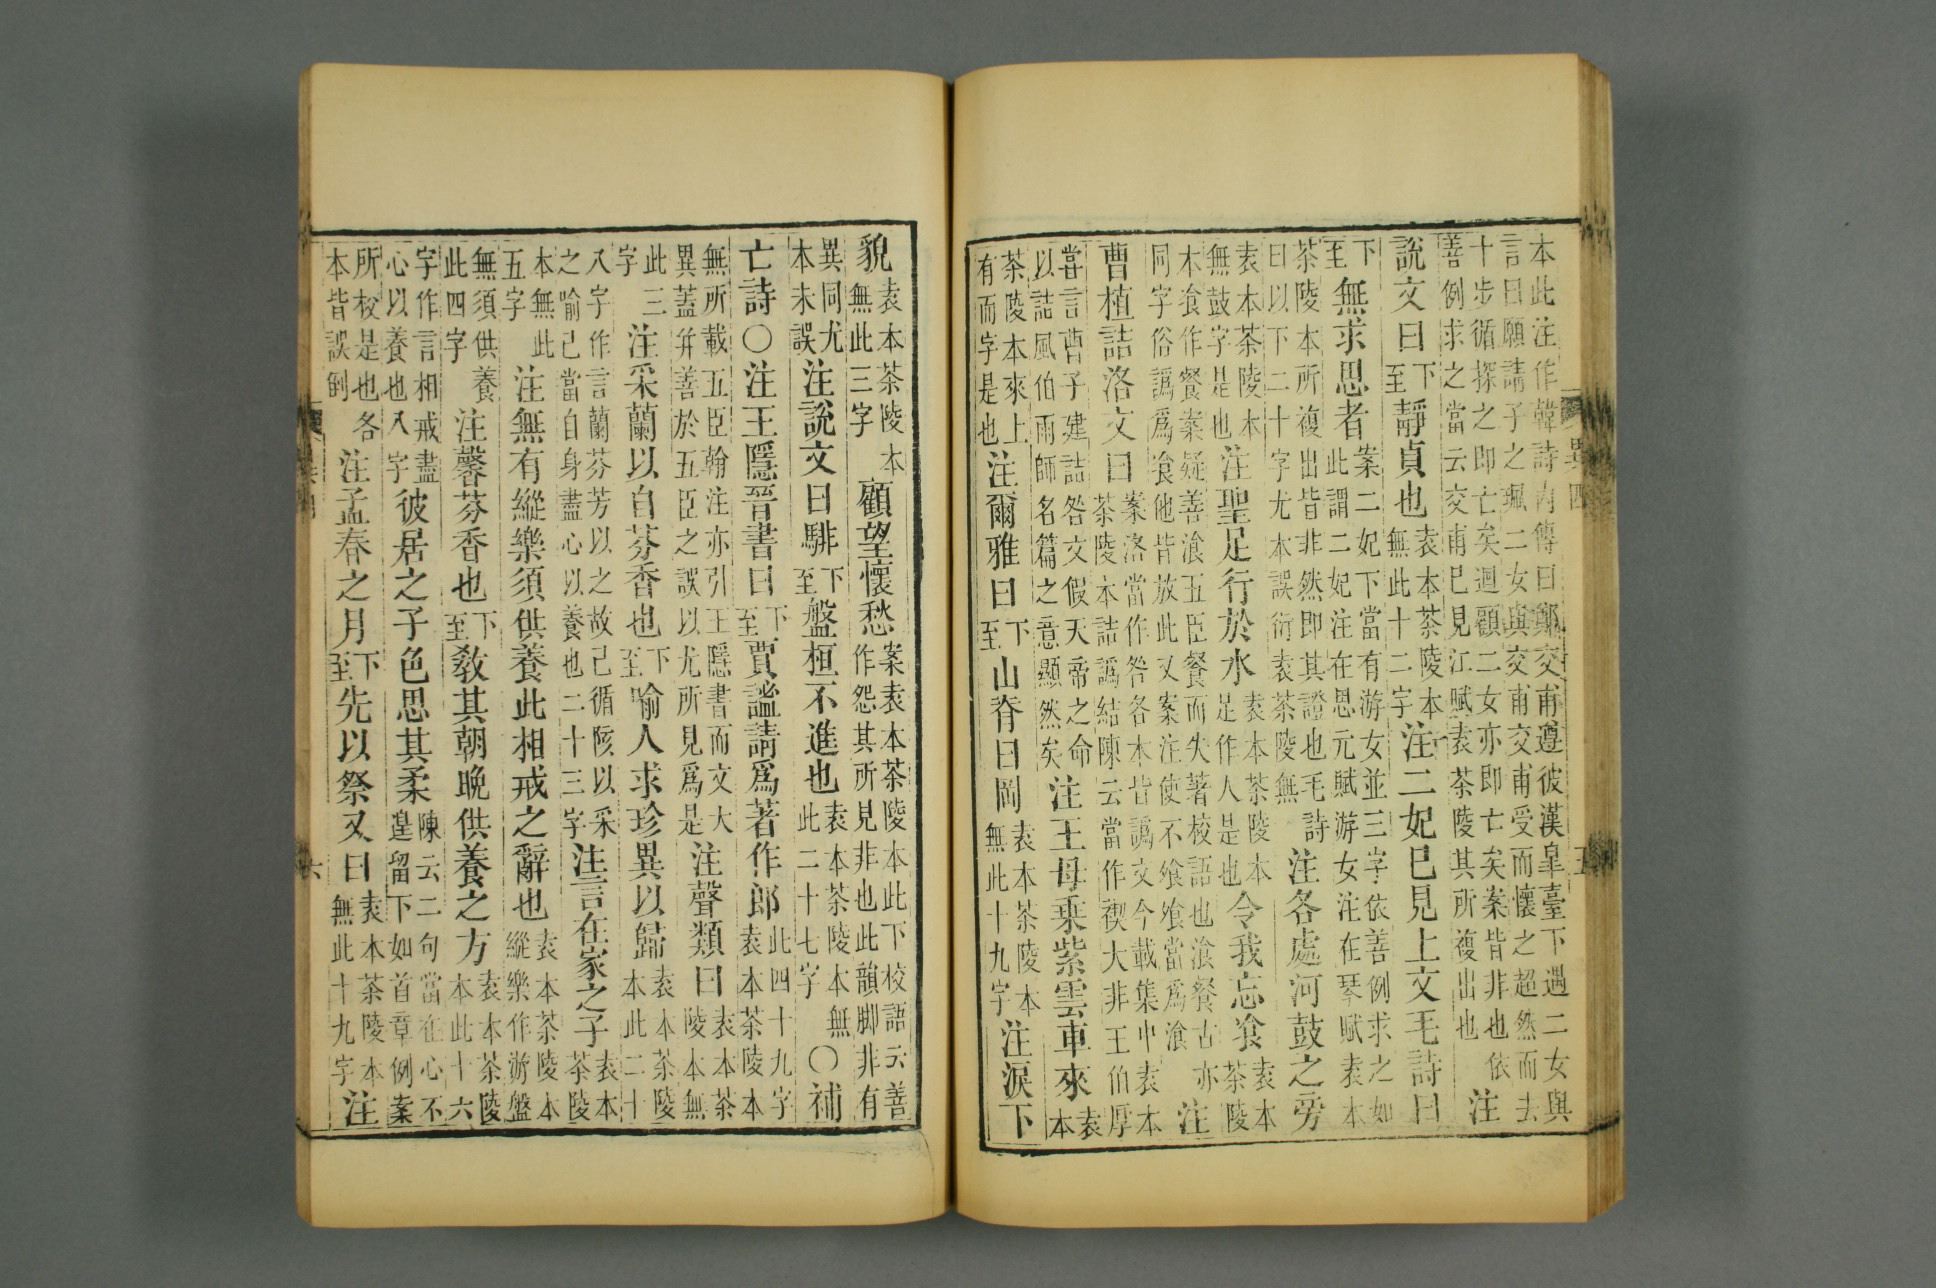 本此注作韓詩內傳曰鄭交甫遵彼漢皋臺下遇二女與言曰願請子之珮二女與交甫交甫受而懷之超然而去
十步循探之即亡矣迴顧二女亦即亡矣案皆非也依善例求之當云交甫已見江賦袁茶陵其所複出也注
說文曰下至靜貞也袁本茶陵本無此十二字注二妃已見上文毛詩曰
下至無求思者案二妃下當有游女並三字依善例求之如此謂二妃注在思元賦游女注在琴賦袁本
茶陵本所複出皆非然即其證也毛詩曰以下二十字尤本誤衍袁茶陵無注各處河鼓之旁
袁本茶陵本無鼓字是也注聖足行於水袁本茶陵本是作人是也令我忘飡袁本茶陵
本飡作餐案疑善湌五臣餐而失著校語也湌餐古亦同字俗譌爲飡他皆放此又案注使不飧飧當爲湌注
曹植詰洛文曰案洛當作咎各本皆譌文今載集中袁本茶陵本詰譌結陳云當作禊大非王伯厚
嘗言曹子建詰咎文假天帝之命以詰風伯雨師名篇之意顯然矣注王母乘紫雲車來袁本
茶陵本來上有而字是也注爾雅曰下至山脊曰岡袁本茶陵本無此十九字注淚下
異四
五
貌袁本茶陵本無此三字顧望懷愁案袁本茶陵本此下校語云善作怨其所見非也此韻脚非有
異同尤本未誤注說文曰騑下至盤桓不進也袁本茶陵本無此二十七字○補
亡詩○注王隱晉書曰下至賈謐請爲著作郎此四十九字袁本茶陵本
無所載五臣翰注亦引王隱書而文大異蓋并善於五臣之誤以尤所見爲是注聲類曰袁本茶陵本無
此三字注采蘭以自芬香也下至喻人求珍異以歸袁本茶陵本此二十
八字作言蘭芬芳以之故己循陔以采之喻己當自身盡心以養也二十三字注言在家之子袁本茶陵
本無此五字注無有縱樂須供養此相戒之辭也袁本茶陵本縱樂作游盤
無須供養此四字注馨芬香也下至敎其朝晚供養之方袁本茶陵本此十六
字作言相戒盡心以養也八字彼居之子色思其柔陳云二句當在心不遑留下如首章例案
所校是也各本皆誤倒注孟春之月下至先以祭又曰袁本茶陵本無此十九字注
六